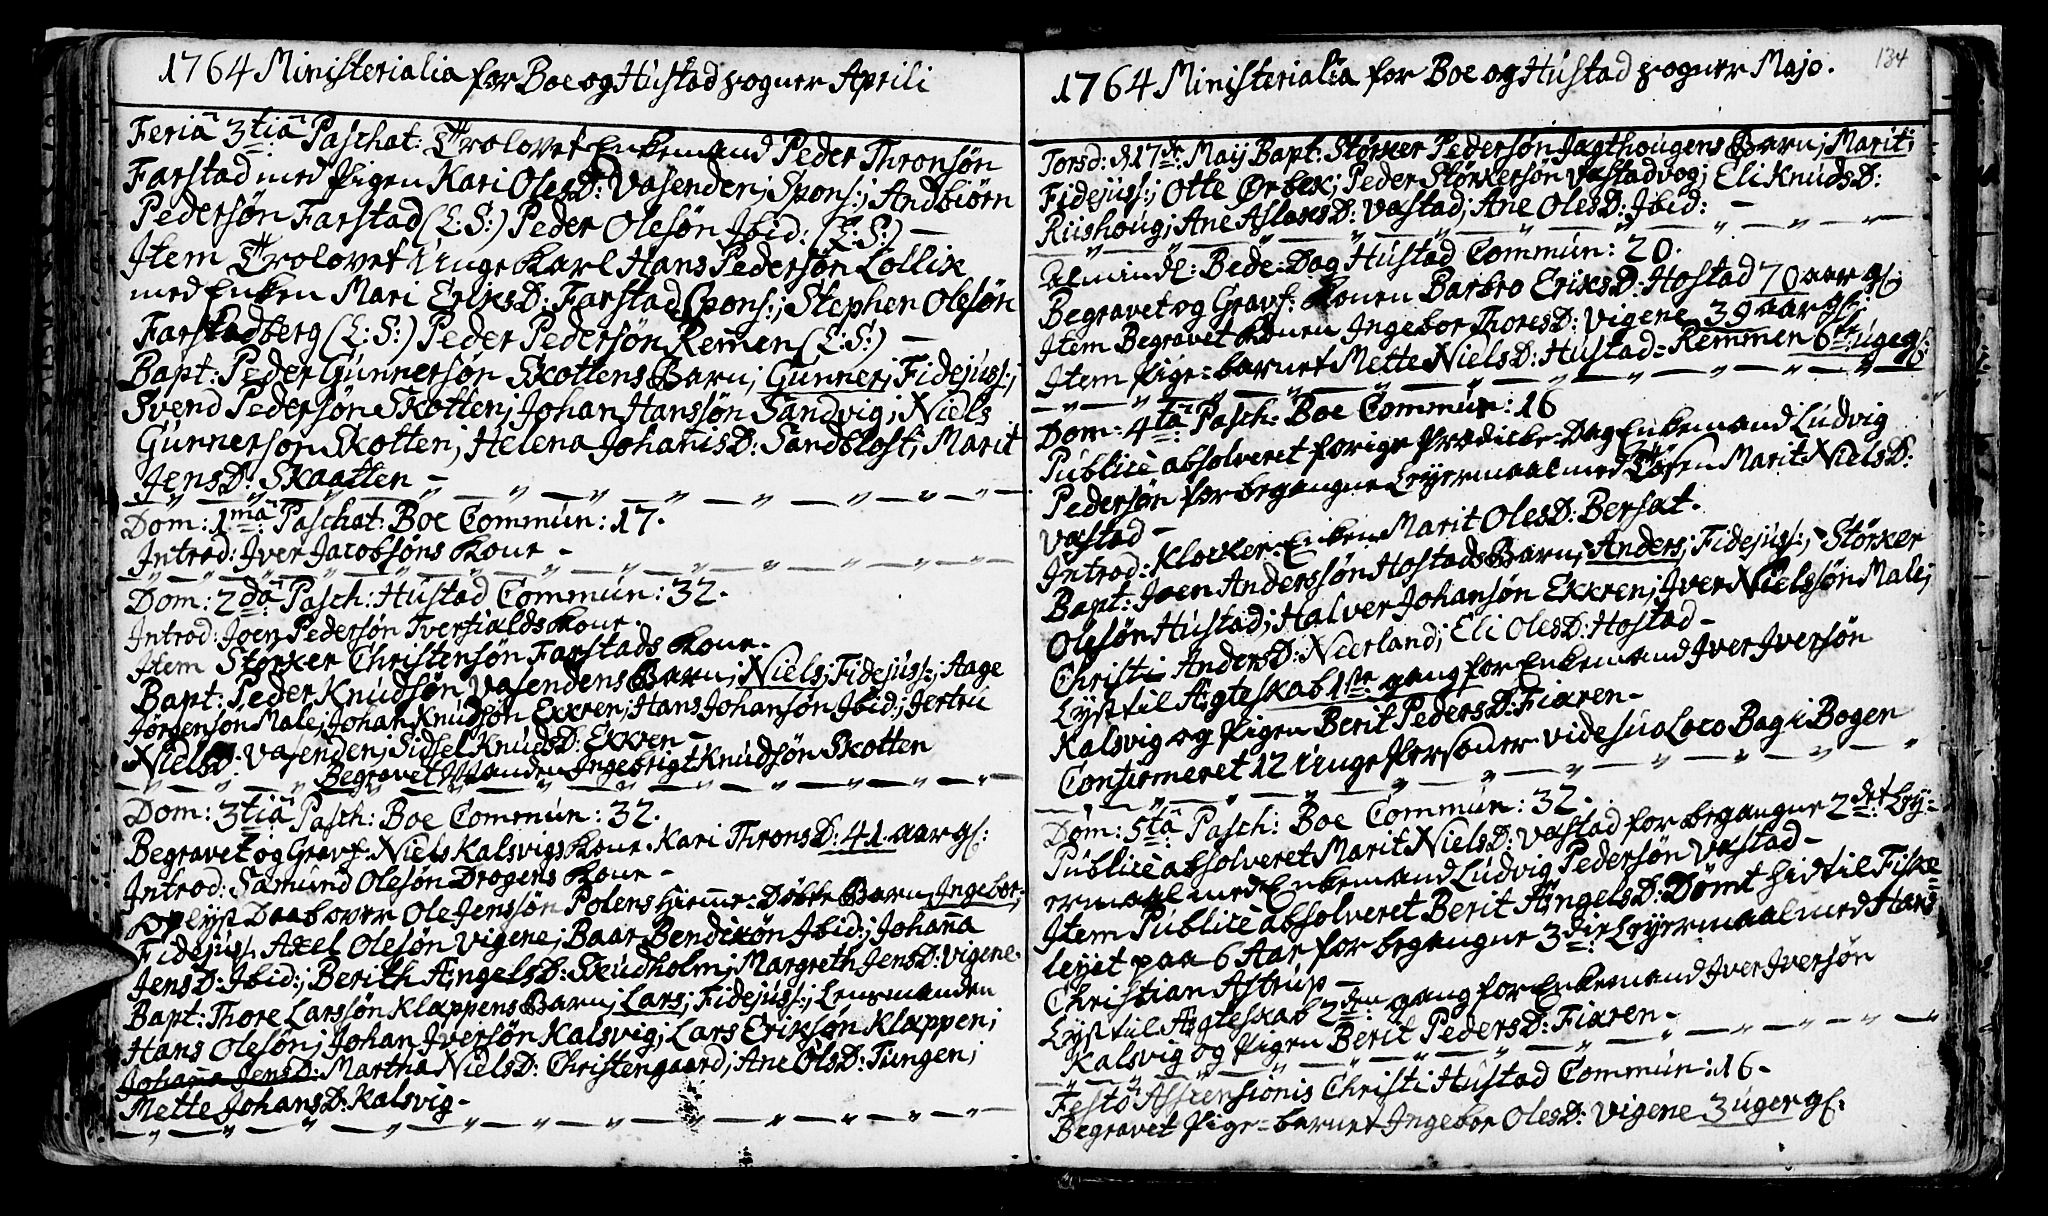 1764 Ministerialia for Boe og Hustad sogner Aprili
Feriâ 3tiâ Paschat: Trolovet Enkemand Peder Thronsøn
Farstad med Pigen Kari OlesD: Vasenden; Spons:; Andbiørn
Pedersøn Farstad (L:S:) Peder Olesøn Jbid: (L:S:) -
Jtem Trolovet Unge Karl Hans Pedersøn Lollik
med Enken Mari EriksD: Farstad Spons:; Stephen Olesøn
Farstadberg (L:S:) Peder Pedersøn Remen (L:S:) -
Bapt: Peder Gunnersøn Skottens Barn; Gunner; Fidejuss:;
Svend Pedersøn Skotten; Johan Hanssøn Sandvig; Niels
Gunnersøn Skotten; Helena JohanisD: Sandblost; Marit
JensD: Skaatten -
Dom: 1mâ Paschat: Boe Commun: 17.
Introd: Jver Jacobsøns Kone -
Dom: 2dâ Pasch: Hustad Commun: 32.
Introd: Joen Pedersøn Tverfialds Kone.
Jtem Størker Christensøn Farstads Kone.
Bapt: Peder Knudsøn Vasendens Barn; Niels; Fidejuss:; Aage
Jørgensøn Male; Johan Knudsøn Ekren; Hans Johansøn Jbid:; Jertru
NielsD: Vasenden; Sidsel KnudsD: Ekren -
Begravet Manden Ingebrigt Knudsøn Skotten
Dom: 3tiâ Pasch: Boe Commun: 32.
Begravet og Gravf: Niels Kalsvigs Kone. Kari ThronsD: 41 aar gl:
Introd: Samund Olesøn Drogens Kone -
Oplyst Daab over Ole Jenssøn Polens Hiemme-Døbte Barn Ingebor;
Fidejuss: Axel Olesøn Vigene; Baar Bendixøn Jbid:; Johana
JensD: Jbid:; Berith ÆngelsD: Skudholm; Margreth JensD: Vigene.
Bapt: Thore Larssøn Klappens Barn; Lars; Fidejuss:; Lensmanden
Hans Olesøn; Johan Jversøn Kalsvig; Lars Eriksøn Klappen;
Johana JensD: Martha NielsD: Christengaard; Ane OlsD: Tungen;
Mette JohansD: Kalsvig -
1764 Ministerialia for Boe og Hustad sogner Majo.
134
Torsd: d 17de Maij Bapt: Størker Pedersøn Jagthougens Barn; Marit;
Fidejuss:; Otte Ørbek; Peder Størkersøn Vastadvog; Eli KnudsD:
Riishoug; Ane AslaksD: Vastad; Ane OlesD: Jbid: -
Almindel: Bede-Dag Hustad Commun: 20.
Begravet og Gravf: Konen Barbro EriksD: Hostad 70 aar gl:
Item Begravet Konen Ingebor ThoresD: Vigene 39 aar gl:
Item Pige-barnet Mette NielsD: Hustad-Remmen 6 uge gl:
Dom: 4tâ Pasch: Boe Commun: 16
Publicè absolveret forige Prædicke-Dag Enkemand Ludvig
Pedersøn for begangne Leyermaal med Tøsen Marit NielsD:
Vastad -
Introd: Klocker-Enken Marit OlesD: Bersat.
Bapt: Joen Anderssøn Hostads Barn; Anders; Fidejuss:; Størker
Olesøn Hustad; Halver Johansøn Ekren; Jver Nielssøn Male;
Christi AndersD: Neerland; Eli OlesD: Hostad -
Lyst til Ægteskab 1ste gang for Enkemand Jver Jversøn
Kalsvig og Pigen Berit PedersD: Fiaren -
Confirmeret 12 Unge Personer vide suo Loco Bag i Bogen
Dom: 5tâ Pasch: Boe Commun: 32.
Publicè absolveret Marit NielsD: Vastad for begangne 2det Ley-
ermaal med Enkemand Ludvig Pedersøn Vastad -
Item Publicè absolveret Berit ÆngelsD: Dømt hid til Fiske-
lejet paa 6 Aar for begangne 3die Leyermaal med Hans
Christian Astrup -
Lyst til Ægteskab 2den gang for Enkemand Jver Jversøn
Kalsvig og Pigen Berit PedersD: Fiaren -
Festo Ascensionis Christi Hustad Commun: 16 -
Begravet Pige-barnet Ingebor OlesD: Vigene 3 uger gl: